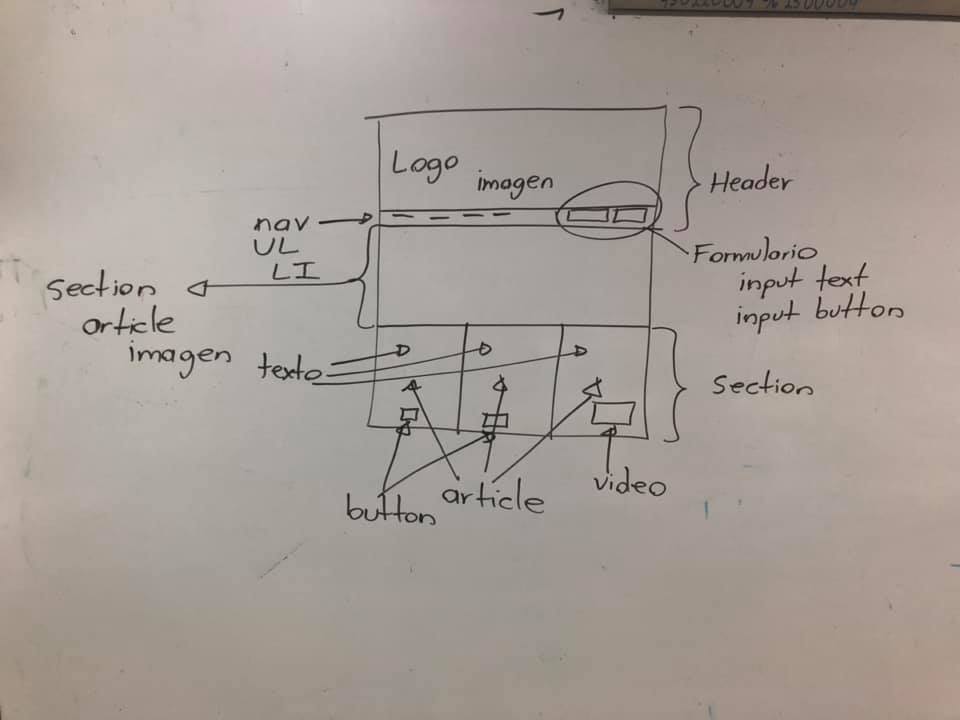 Logo
imagen
Header
nav
UL
LI
Formulario
input text
input button
section
article
imagen
texto
Section
button
article
video